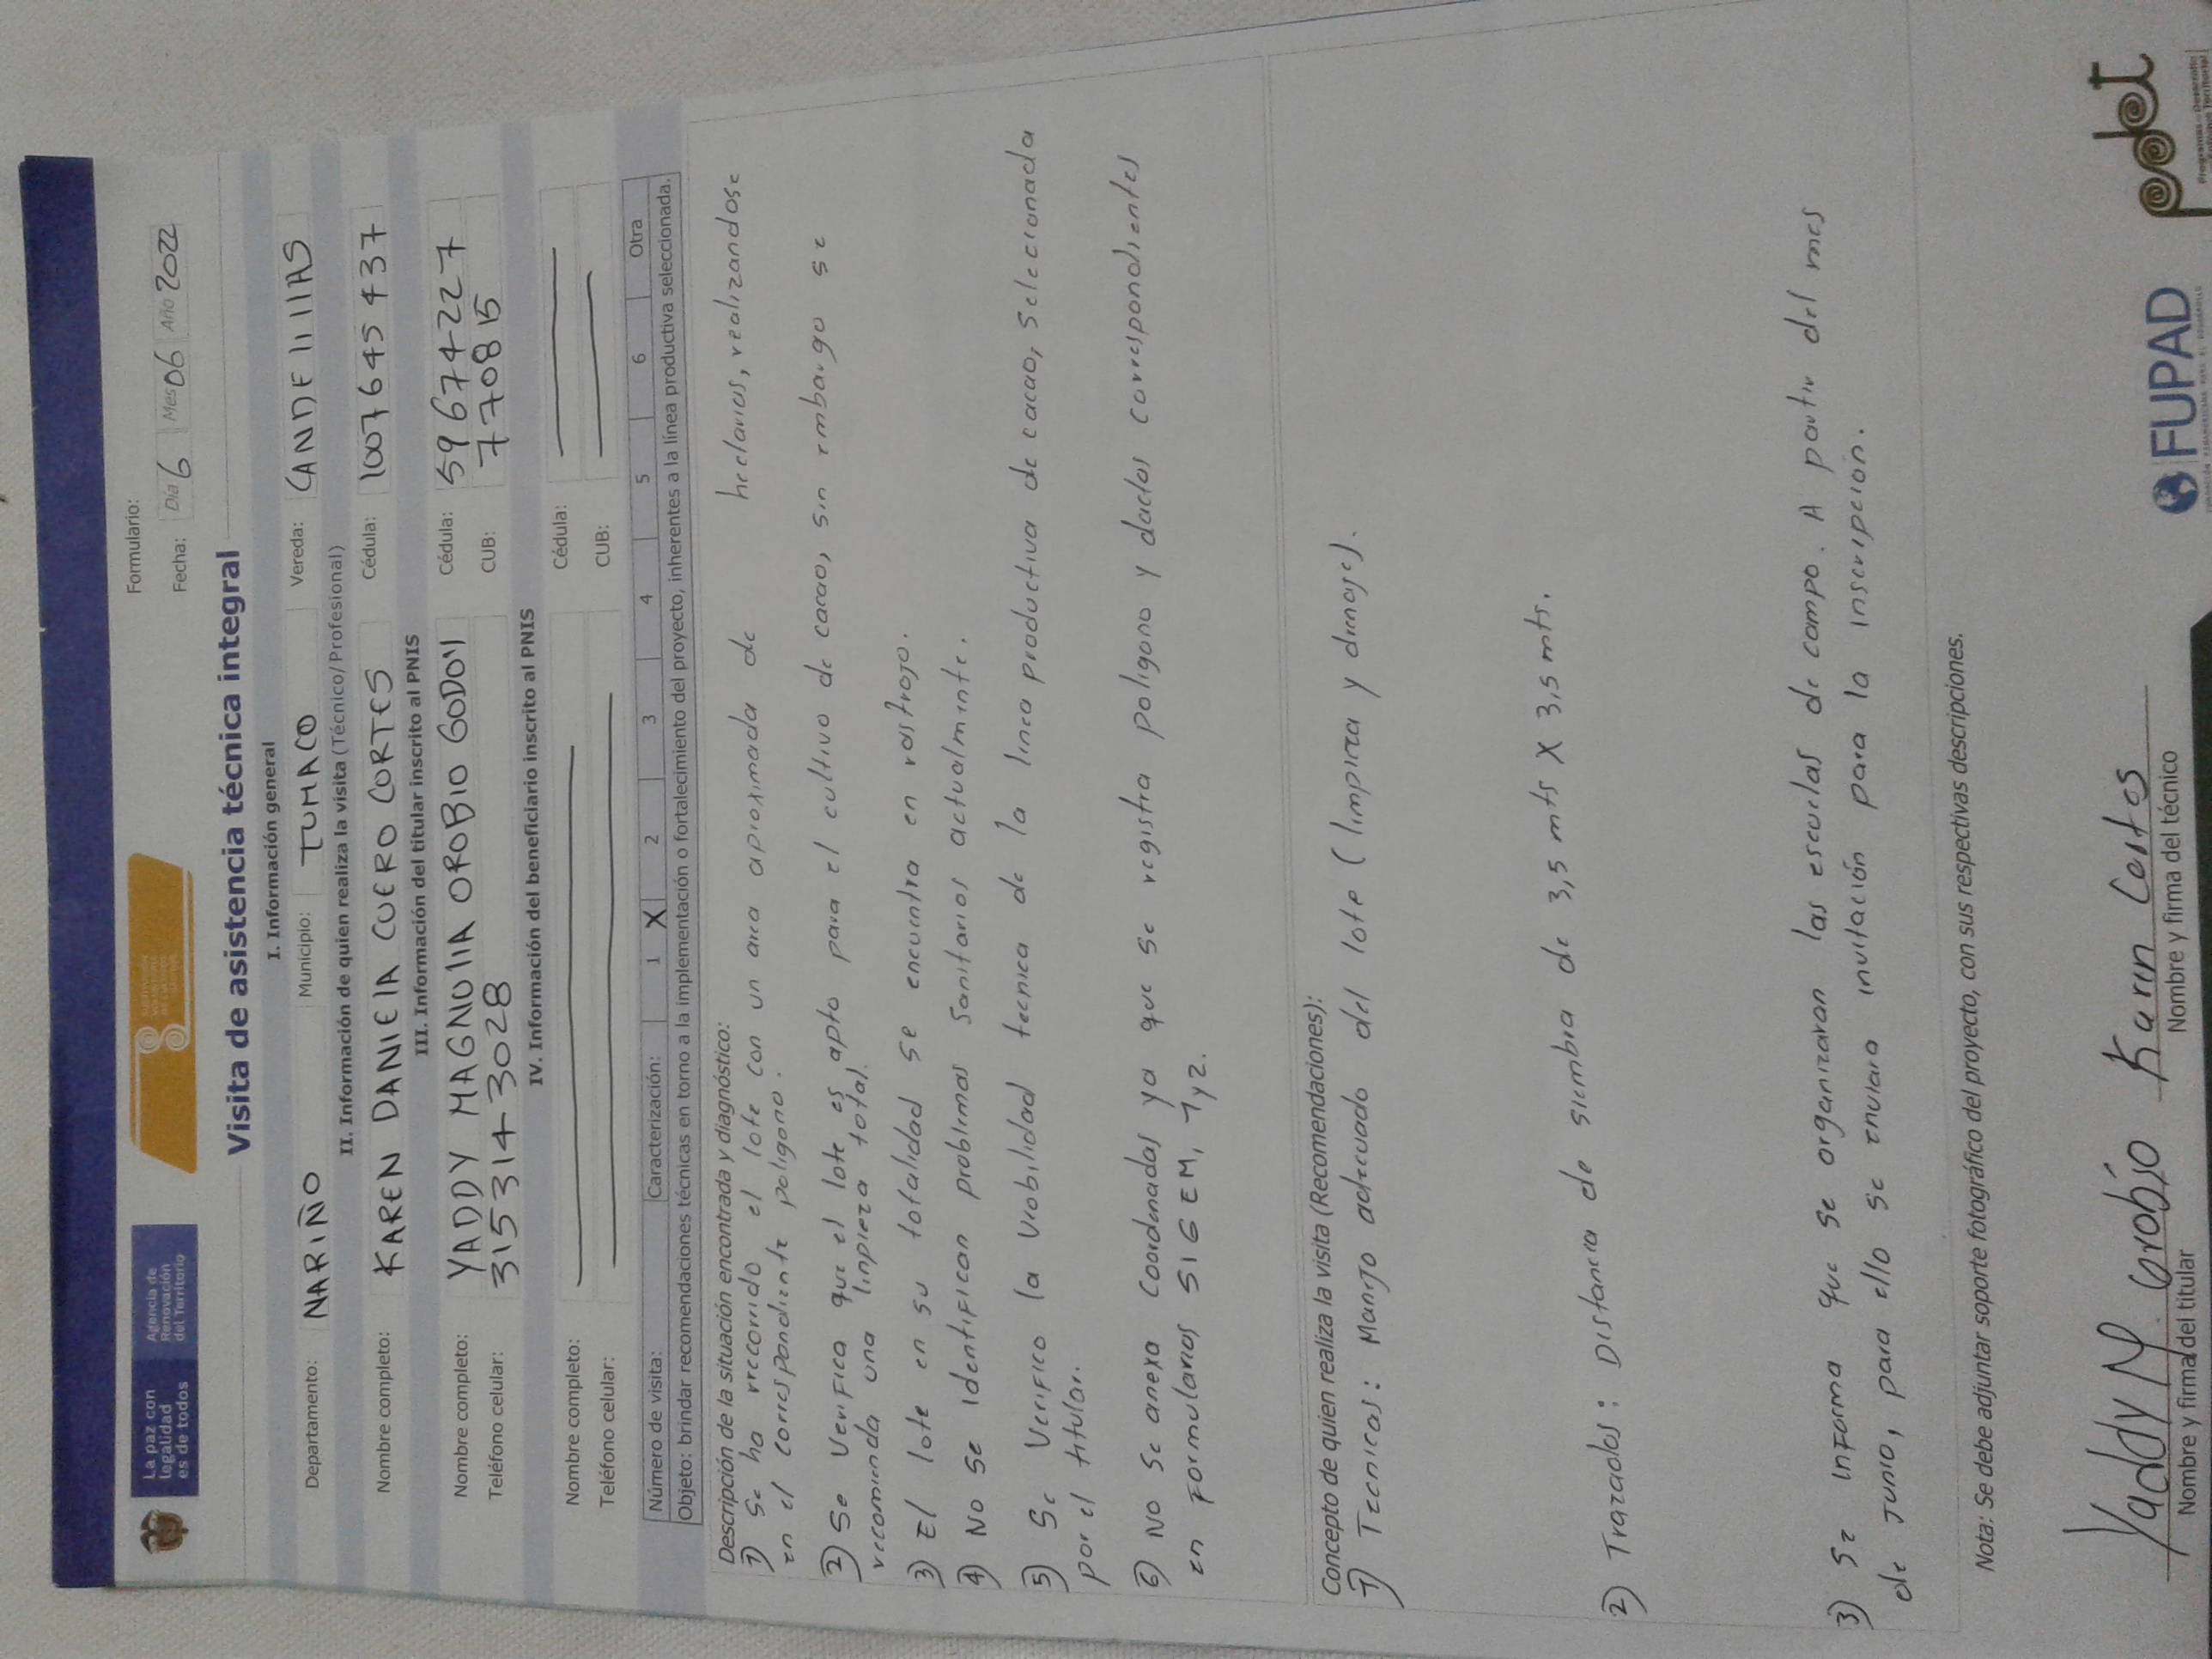 La paz con
legalidad
es de todos
Agencia de
Renovación
del Territorio
SUSTITUCIÓN
VOLUNTARIA
Formulario:
Fecha: Día 6 Mes 06 Año 2022
Visita de asistencia técnica integral
I. Información general
Departamento: NARIÑO Municipio: TUMACO Vereda: CANDELILLAS
II. Información de quien realiza la visita (Técnico/Profesional)
Nombre completo: KAREN DANIELA CUERO CORTES Cédula: 1007645437
III. Información del titular inscrito al PNIS
Nombre completo: YADDY MAGNOLIA OROBIO GODOY Cédula: 59674227
Teléfono celular: 3153143028 CUB: 770815
IV. Información del beneficiario inscrito al PNIS
Nombre completo: Cédula:
Teléfono celular: CUB:
Número de visita: Caracterización: 1 X 2 3 4 5 6 Otra
Objeto: brindar recomendaciones técnicas en torno a la implementación o fortalecimiento del proyecto, inherentes a la línea productiva seleccionada.
Descripción de la situación encontrada y diagnóstico:
1) Se ha rrecorrido el lote con un area aproximada de hectarias, realizandose
en el correspondiente poligono.
2) Se Verifica que el lote es apto para el cultivo de cacao, sin embargo se
recomienda una limpieza total.
3) El lote en su totalidad se encuentra en rastrojo.
4) No se identifican problemas Sanitarios actualmente.
5) Se Verifico la viabilidad tecnica de la linea productiva de cacao, seleccionada
por el titular.
6) No se anexa coordenadas ya que se registra poligono y dactos correspondientes
en Formularios SIGEM, 1 y 2.
Concepto de quien realiza la visita (Recomendaciones):
1) Tecnicas: Manejo adecuado del lote (limpieza y drenaje).
2) Trazados: Distancia de siembra de 3,5 mts X 3,5 mts.
3) Se informa que se organizaran las escuelas de campo. A partir del mes
de Junio, para ello se enviara invitación para la inscripción.
Nota: Se debe adjuntar soporte fotográfico del proyecto, con sus respectivas descripciones.
Yaddy M. Orobio Karen Cortes
Nombre y firma del titular Nombre y firma del técnico
FUPAD
pdet